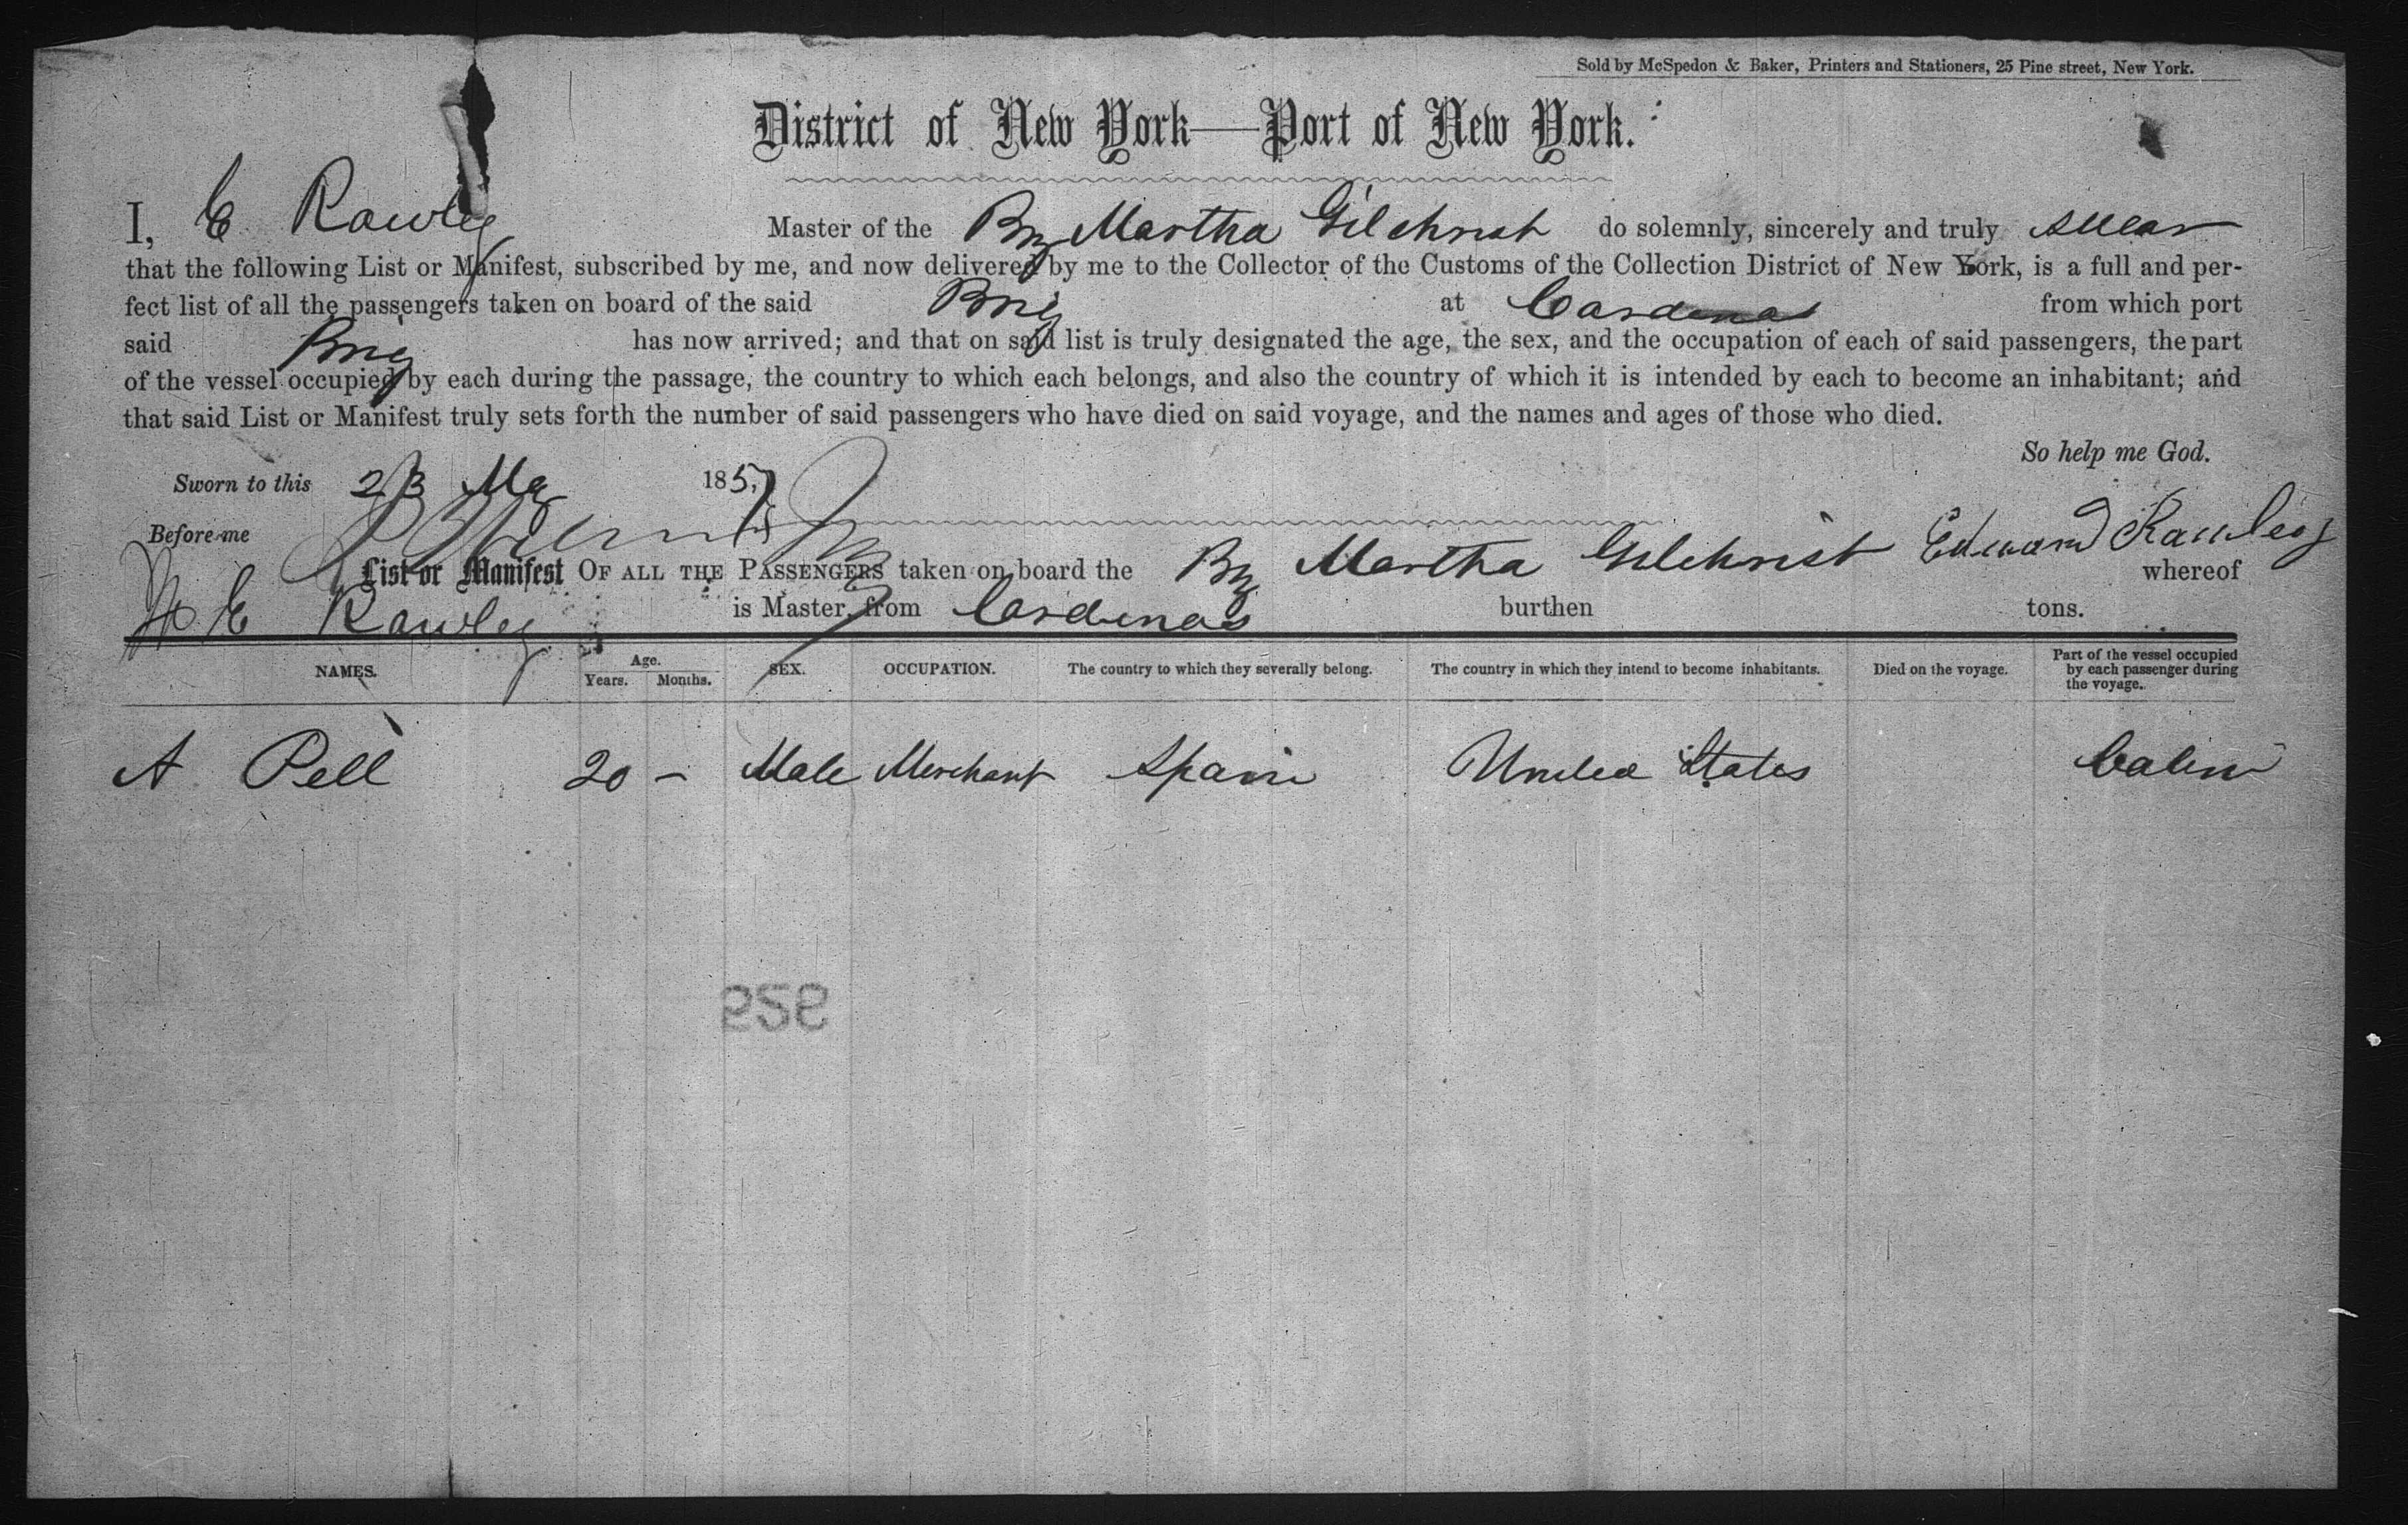 Sold by McSpedon & Baker, Printers and Stationers, 25 Pine street, New York.
District of New York—Port of New York.
I, E Rawley Master of the Brig Martha Gilchrist do solemnly, sincerely and truly swear
that the following List or Manifest, subscribed by me, and now delivered by me to the Collector of the Customs of the Collection District of New York, is a full and per-
fect list of all the passengers taken on board of the said Brig at Cardenas from which port
said Brig has now arrived; and that on said list is truly designated the age, the sex, and the occupation of each of said passengers, the part
of the vessel occupied by each during the passage, the country to which each belongs, and also the country of which it is intended by each to become an inhabitant; and
that said List or Manifest truly sets forth the number of said passengers who have died on said voyage, and the names and ages of those who died.
So help me God.
Sworn to this 23 Ma 1857
Before me
Edward Rawley
List or Manifest OF ALL THE PASSENGERS taken on board the Brig Martha Gilchrist whereof
E Rawley is Master, from Cardenas burthen tons.
NAMES. Age. Years. Months. SEX. OCCUPATION. The country to which they severally belong. The country in which they intend to become inhabitants. Died on the voyage. Part of the vessel occupied by each passenger during the voyage.
A Pell 20 – Male Merchant Spain United States Cabin